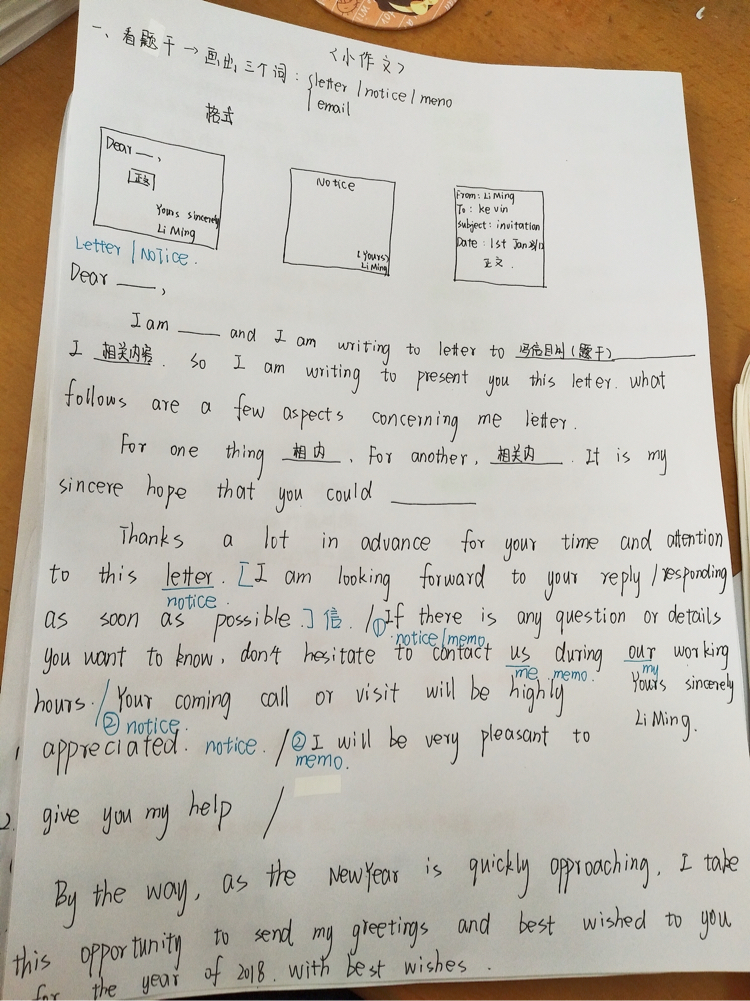 <小作文>
一、看题干→画出三个词: letter / notice / meno
email
格式
Dear ___,
正文
Yours sincerely
Li Ming
Notice
(Yours)
Li Ming
From: Li Ming
To: kevin
subject: invitation
Date: 1st Jan
正文.
Letter / Notice.
Dear ___,
I am ___ and I am writing to letter to 写信目的(题干)
I 相关内容. So I am writing to present you this letter. what
follows are a few aspects concerning me letter.
For one thing 相内. For another, 相关内. It is my
sincere hope that you could ___
Thanks a lot in advance for your time and attention
to this letter. [I am looking forward to your reply / responding
notice.
as soon as possible.] 信. / ①If there is any question or details
notice/memo
you want to know, don't hesitate to contact us during our working
me memo. my
hours. / Your coming call or visit will be highly
Yours sincerely
② notice.
Li Ming.
appreciated. notice. / ②I will be very pleasant to
memo.
give you my help /
By the way, as the New Year is quickly approaching, I take
this opportunity to send my greetings and best wished to you
for the year of 2018. with best wishes.